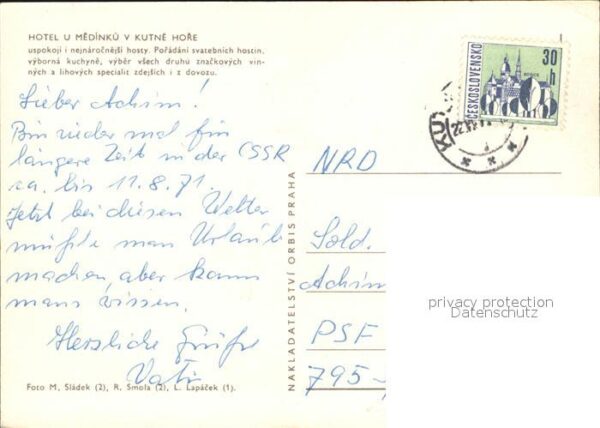 HOTEL U MĚDÍNKŮ V KUTNÉ HOŘE
uspokojí i nejnáročnější hosty. Pořádání svatebních hostin,
výborná kuchyně, výběr všech druhů značkových vin-
ných a lihových specialit zdejších i z dovozu.
Lieber Achim!
Bin wieder mal für
längere Zeit in der CSSR
ca. bis 11.8.71.
Jetzt bei diesem Wetter
müßte man Urlaub
machen, aber kann
mans wissen.
Herzliche Grüße
Vati
Foto M. Sládek (2), R. Smola (2), L. Lapáček (1).
NAKLADATELSTVÍ ORBIS PRAHA
ČESKOSLOVENSKO
30
h
NRD
Sold.
Achim
PSF
795-
privacy protection
Datenschutz